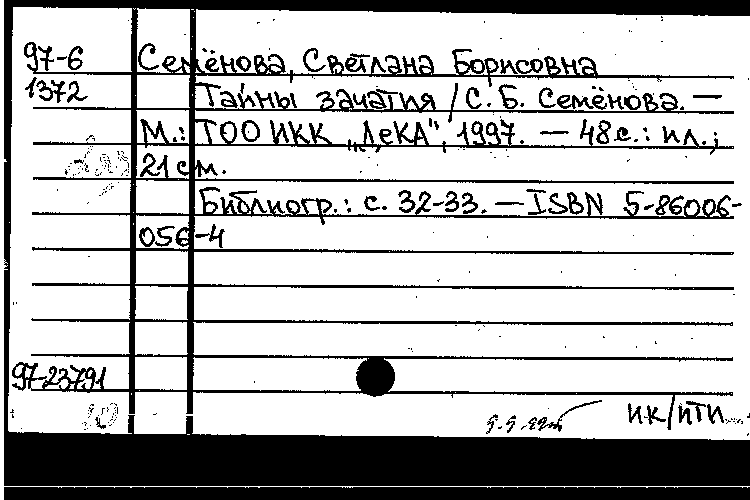 97-6 Семёнова, Светлана Борисовна
1372 Тайны зачатия / С. Б. Семёнова. —
М.: ТОО ИКК „ДеКА“, 1997. — 48 с.: ил.;
21 см.
Библиогр.: с. 32-33. — ISBN 5-86006-
056-4
97-23791
10
ИК/ИТИ